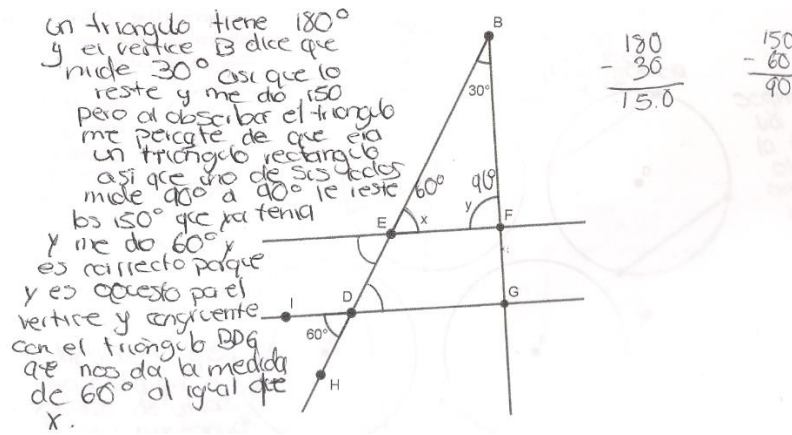 un triangulo tiene 180°
y el vertice B dice que
mide 30° asi que lo
reste y me dio 150
pero al obserbar el triangulo
me percate de que era
un triángulo rectangulo
asi que uno de sus lados
mide 90° a 90° le reste
los 150° que ya tenia
y me dio 60° y
es correcto porque
y es opuesto por el
vertice y congruente
con el triángulo BDG
que nos da la medida
de 60° al igual que
x.
B
30°
60°
90°
E
x
y
F
I
D
G
60°
H
180
- 30
150
150
- 60
90